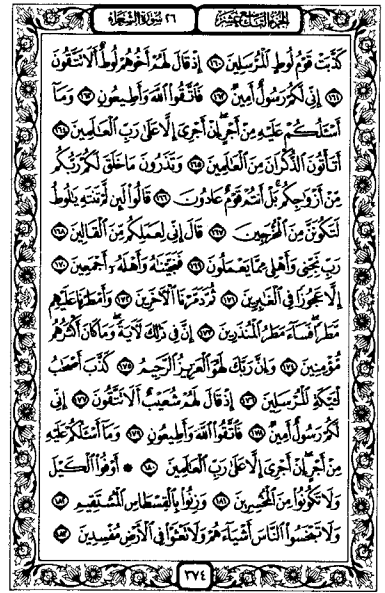 الجزء التاسع عشر ٢٦ سورة الشعراء
كَذَّبَتْ قَوْمُ لُوطٍ ٱلْمُرْسَلِينَ ١٦٠ إِذْ قَالَ لَهُمْ أَخُوهُمْ لُوطٌ أَلَا تَتَّقُونَ
١٦١ إِنِّي لَكُمْ رَسُولٌ أَمِينٌ ١٦٢ فَٱتَّقُوا۟ ٱللَّهَ وَأَطِيعُونِ ١٦٣ وَمَآ
أَسْـَٔلُكُمْ عَلَيْهِ مِنْ أَجْرٍ إِنْ أَجْرِىَ إِلَّا عَلَىٰ رَبِّ ٱلْعَـٰلَمِينَ ١٦٤
أَتَأْتُونَ ٱلذُّكْرَانَ مِنَ ٱلْعَـٰلَمِينَ ١٦٥ وَتَذَرُونَ مَا خَلَقَ لَكُمْ رَبُّكُم
مِّنْ أَزْوَٰجِكُم بَلْ أَنتُمْ قَوْمٌ عَادُونَ ١٦٦ قَالُوا۟ لَئِن لَّمْ تَنتَهِ يَـٰلُوطُ
لَتَكُونَنَّ مِنَ ٱلْمُخْرَجِينَ ١٦٧ قَالَ إِنِّي لِعَمَلِكُم مِّنَ ٱلْقَالِينَ ١٦٨
رَبِّ نَجِّنِي وَأَهْلِي مِمَّا يَعْمَلُونَ ١٦٩ فَنَجَّيْنَـٰهُ وَأَهْلَهُۥٓ أَجْمَعِينَ ١٧٠
إِلَّا عَجُوزًا فِي ٱلْغَـٰبِرِينَ ١٧١ ثُمَّ دَمَّرْنَا ٱلْـَٔاخَرِينَ ١٧٢ وَأَمْطَرْنَا عَلَيْهِم
مَّطَرًا فَسَآءَ مَطَرُ ٱلْمُنذَرِينَ ١٧٣ إِنَّ فِي ذَٰلِكَ لَـَٔايَةً وَمَا كَانَ أَكْثَرُهُم
مُّؤْمِنِينَ ١٧٤ وَإِنَّ رَبَّكَ لَهُوَ ٱلْعَزِيزُ ٱلرَّحِيمُ ١٧٥ كَذَّبَ أَصْحَـٰبُ
لْـَٔيْكَةِ ٱلْمُرْسَلِينَ ١٧٦ إِذْ قَالَ لَهُمْ شُعَيْبٌ أَلَا تَتَّقُونَ ١٧٧ إِنِّي
لَكُمْ رَسُولٌ أَمِينٌ ١٧٨ فَٱتَّقُوا۟ ٱللَّهَ وَأَطِيعُونِ ١٧٩ وَمَآ أَسْـَٔلُكُمْ عَلَيْهِ
مِنْ أَجْرٍ إِنْ أَجْرِىَ إِلَّا عَلَىٰ رَبِّ ٱلْعَـٰلَمِينَ ١٨٠ ۞ أَوْفُوا۟ ٱلْكَيْلَ
وَلَا تَكُونُوا۟ مِنَ ٱلْمُخْسِرِينَ ١٨١ وَزِنُوا۟ بِٱلْقِسْطَاسِ ٱلْمُسْتَقِيمِ ١٨٢
وَلَا تَبْخَسُوا۟ ٱلنَّاسَ أَشْيَآءَهُمْ وَلَا تَعْثَوْا۟ فِي ٱلْأَرْضِ مُفْسِدِينَ ١٨٣
٣٧٤